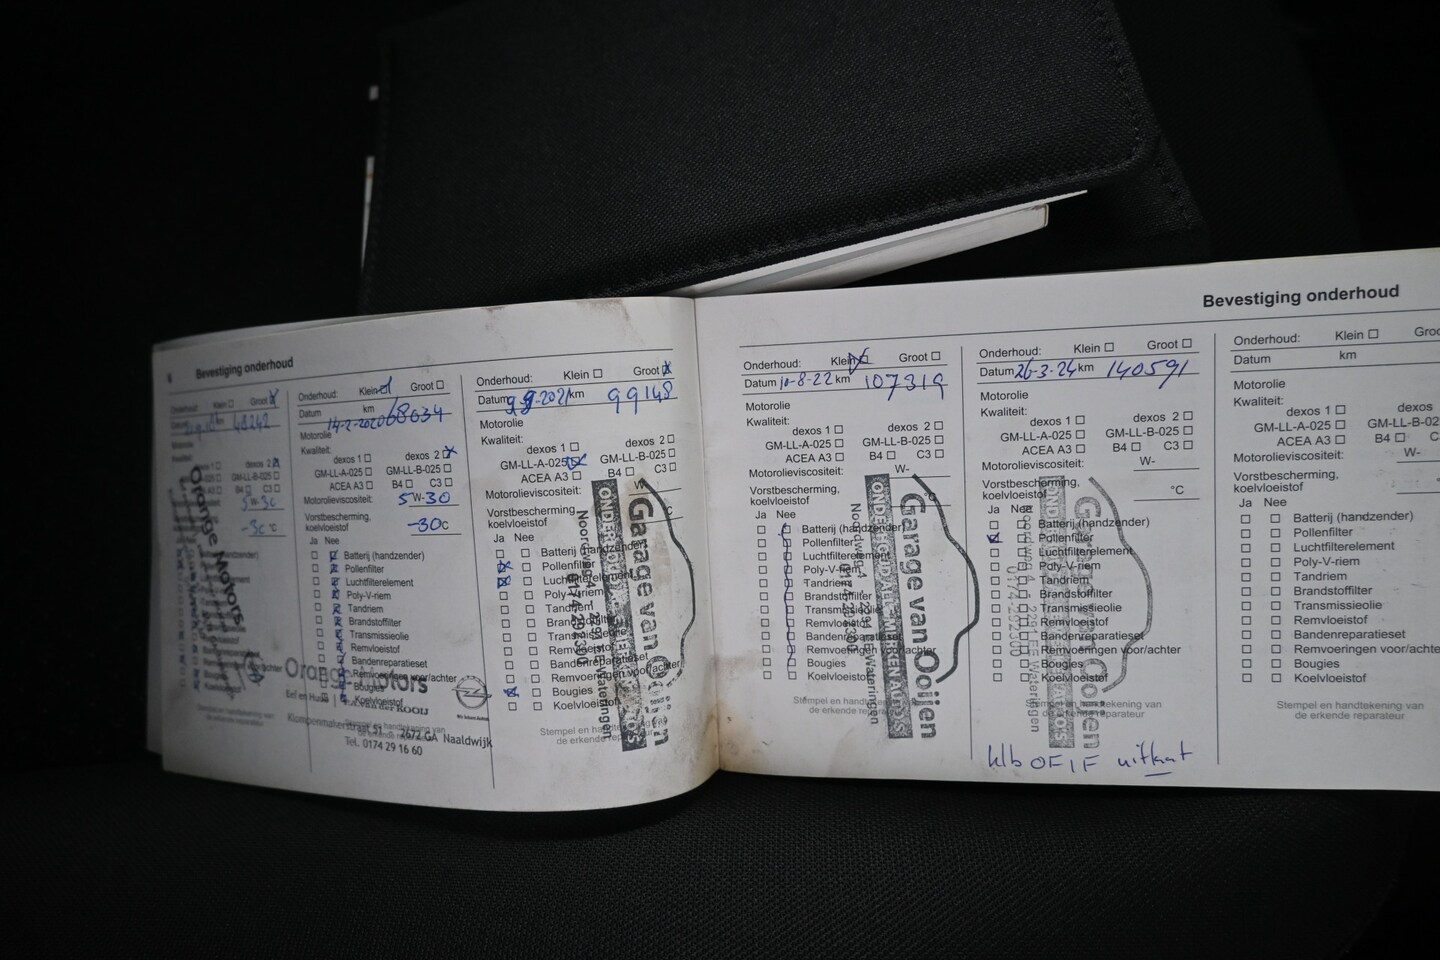 6 Bevestiging onderhoud
Onderhoud: Klein Groot
Datum km 48242
Motorolie
Kwaliteit:
dexos 1 dexos 2
GM-LL-A-025 GM-LL-B-025
ACEA A3 B4 C3
5 W-30
-30 °C
Orange Motors
Onderhoud: Klein Groot
Datum 14-2-2020 km 68634
Motorolie
Kwaliteit:
dexos 1 dexos 2
GM-LL-A-025 GM-LL-B-025
ACEA A3 B4 C3
Motorolieviscositeit: 5 W-30
Vorstbescherming,
koelvloeistof -30 °C
Ja Nee
Batterij (handzender)
Pollenfilter
Luchtfilterelement
Poly-V-riem
Tandriem
Brandstoffilter
Transmissieolie
Remvloeistof
Bandenreparatieset
Remvoeringen voor/achter
Bougies
Koelvloeistof
Orange Motors
2672 GA Naaldwijk
Tel. 0174 29 16 60
Onderhoud: Klein Groot
Datum 9-9-2021 km 99148
Motorolie
Kwaliteit:
dexos 1 dexos 2
GM-LL-A-025 GM-LL-B-025
ACEA A3 B4 C3
Motorolieviscositeit: W-
Vorstbescherming,
koelvloeistof °C
Ja Nee
Batterij (handzender)
Pollenfilter
Luchtfilterelement
Poly-V-riem
Tandriem
Brandstoffilter
Transmissieolie
Remvloeistof
Bandenreparatieset
Remvoeringen voor/achter
Bougies
Koelvloeistof
Stempel en handtekening van
de erkende reparateur
Garage van Ooijen
ONDERHOUD ALLE MERKEN AUTO'S
Noordweg 4
Wateringen
Bevestiging onderhoud
Onderhoud: Klein Groot
Datum 10-8-22 km 107319
Motorolie
Kwaliteit:
dexos 1 dexos 2
GM-LL-A-025 GM-LL-B-025
ACEA A3 B4 C3
Motorolieviscositeit: W-
Vorstbescherming,
koelvloeistof °C
Ja Nee
Batterij (handzender)
Pollenfilter
Luchtfilterelement
Poly-V-riem
Tandriem
Brandstoffilter
Transmissieolie
Remvloeistof
Bandenreparatieset
Remvoeringen voor/achter
Bougies
Koelvloeistof
Stempel en handtekening van
de erkende reparateur
Garage van Ooijen
ONDERHOUD ALLE MERKEN AUTO'S
Noordweg 4
Wateringen
Onderhoud: Klein Groot
Datum 26-3-24 km 140591
Motorolie
Kwaliteit:
dexos 1 dexos 2
GM-LL-A-025 GM-LL-B-025
ACEA A3 B4 C3
Motorolieviscositeit: W-
Vorstbescherming,
koelvloeistof °C
Ja Nee
Batterij (handzender)
Pollenfilter
Luchtfilterelement
Poly-V-riem
Tandriem
Brandstoffilter
Transmissieolie
Remvloeistof
Bandenreparatieset
Remvoeringen voor/achter
Bougies
Koelvloeistof
Stempel en handtekening van
de erkende reparateur
Garage van Ooijen
Wateringen
Onderhoud: Klein Groo
Datum km
Motorolie
Kwaliteit:
dexos 1 dexos
GM-LL-A-025 GM-LL-B-025
ACEA A3 B4 C3
Motorolieviscositeit: W-
Vorstbescherming,
koelvloeistof
Ja Nee
Batterij (handzender)
Pollenfilter
Luchtfilterelement
Poly-V-riem
Tandriem
Brandstoffilter
Transmissieolie
Remvloeistof
Bandenreparatieset
Remvoeringen voor/achte
Bougies
Koelvloeistof
Stempel en handtekening van
de erkende reparateur